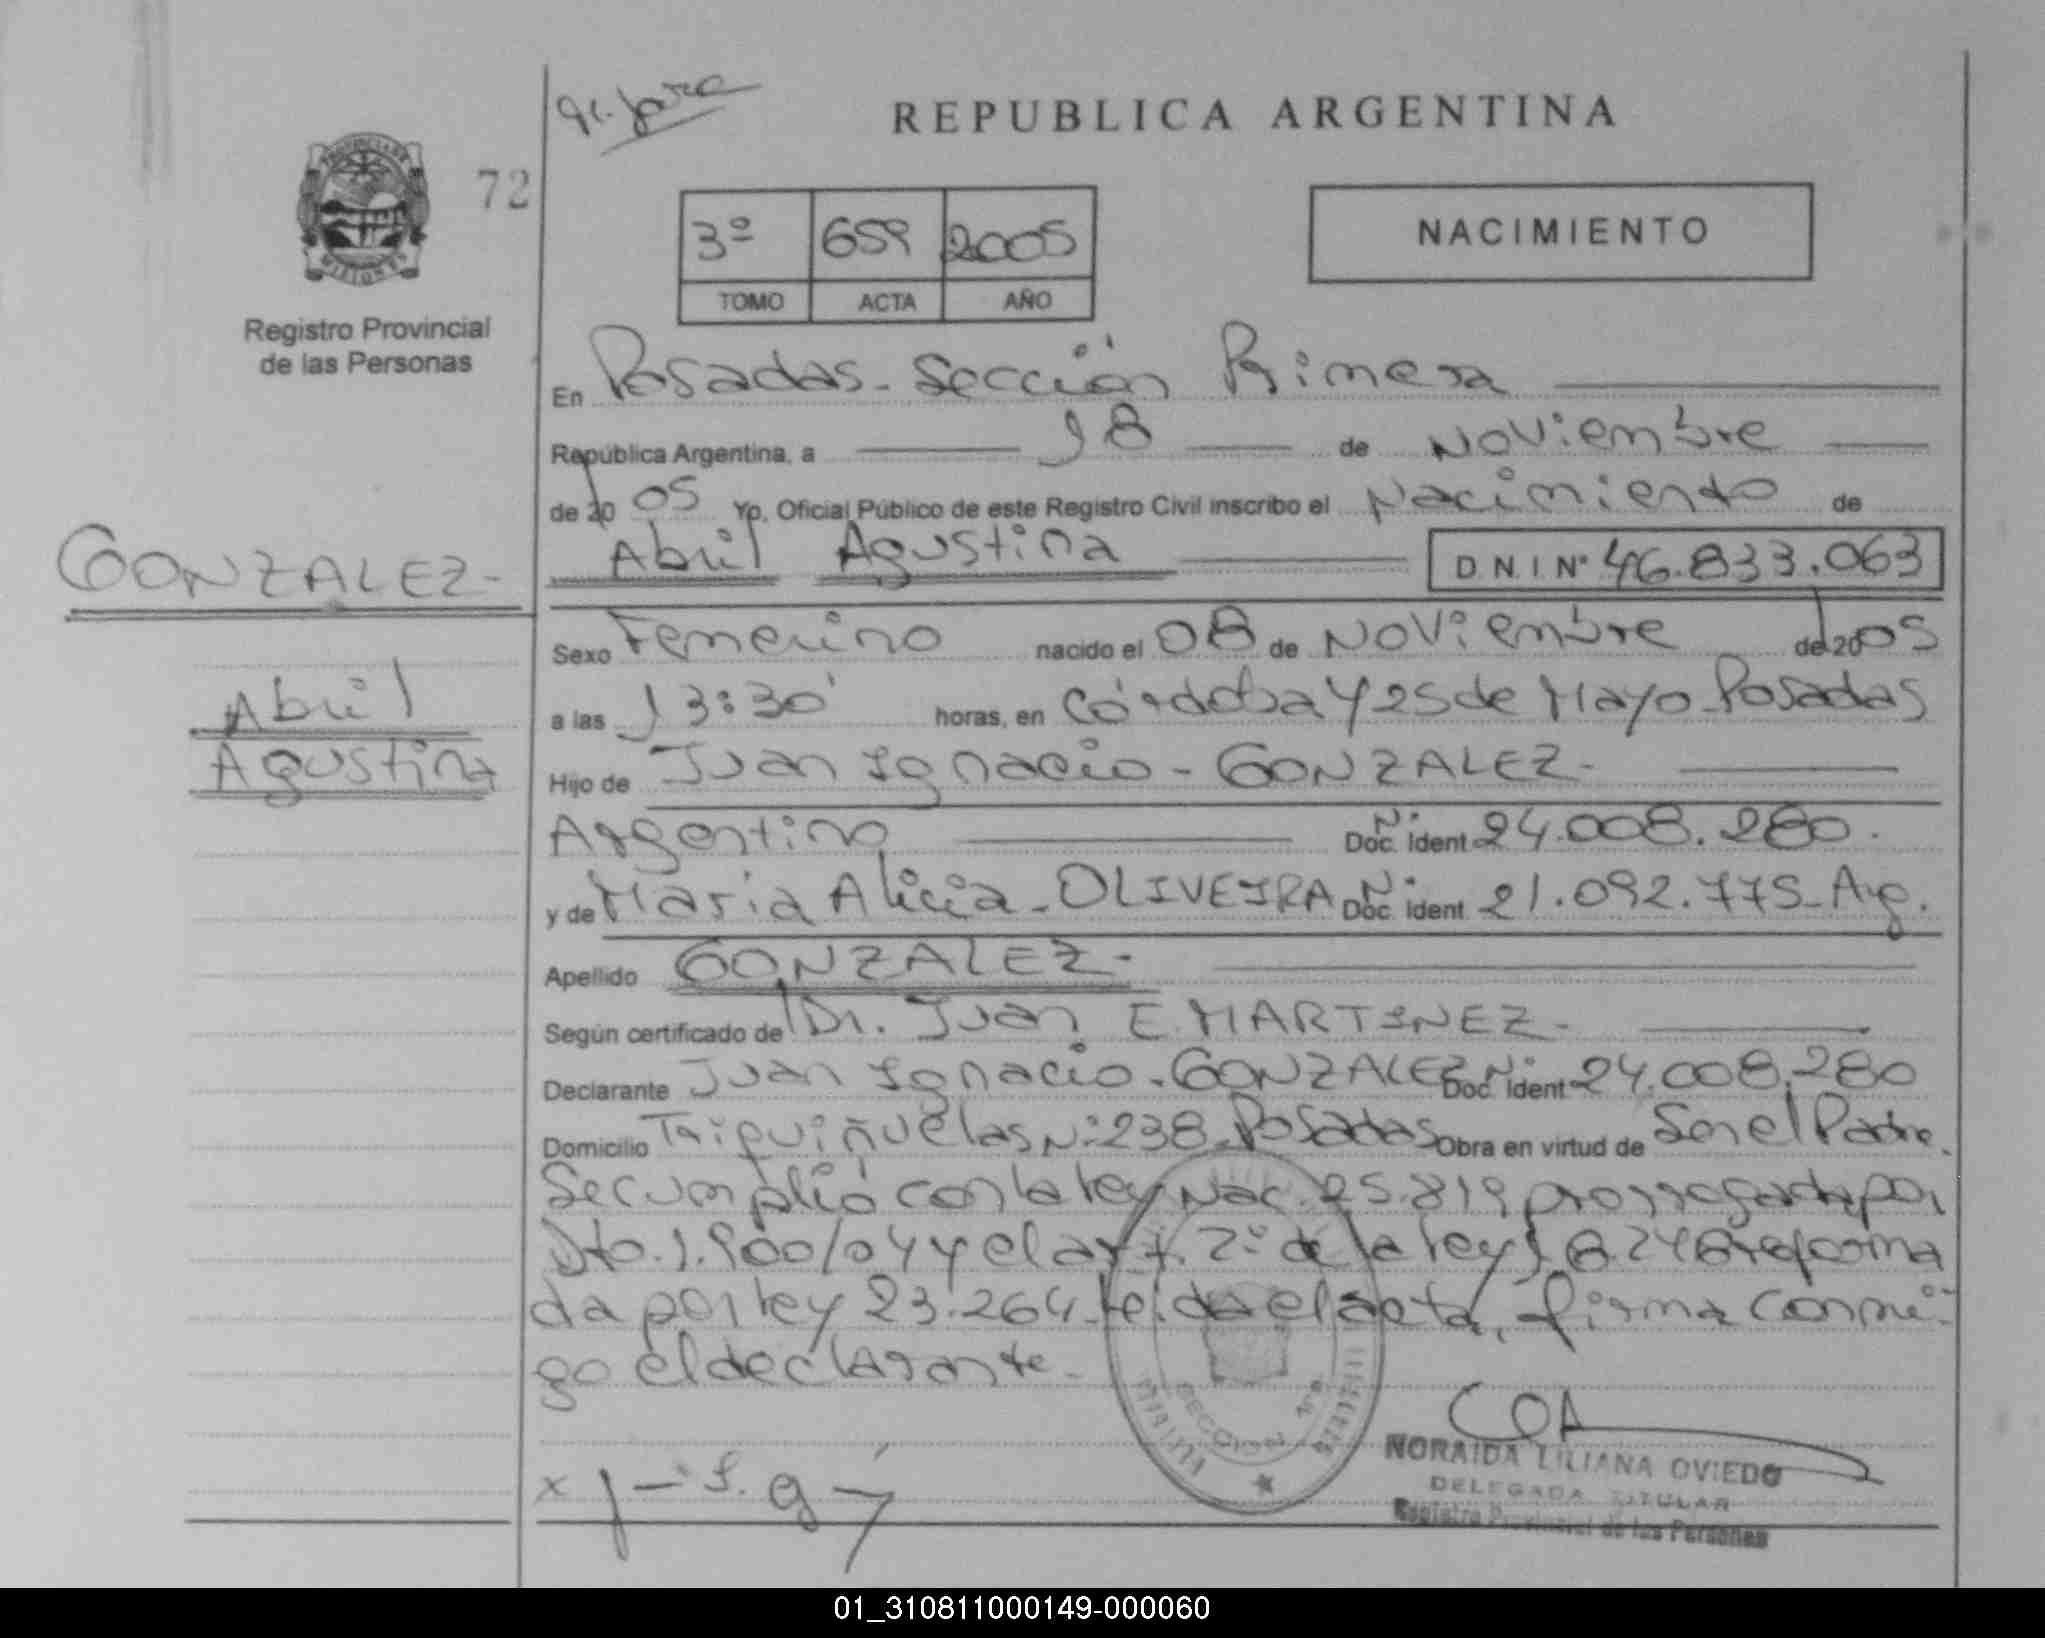 REPUBLICA ARGENTINA
PROVINCIA DE
MISIONES
72
Registro Provincial
de las Personas
3º 659 2005
TOMO ACTA AÑO
NACIMIENTO
En Posadas - Sección Primera
República Argentina, a 18 de Noviembre
de 2005 Yo, Oficial Público de este Registro Civil inscribo el Nacimiento de
Abril Agustina D.N.I Nº 46.833.063
GONZALEZ-
Abril
Agustina
Sexo Femenino nacido el 08 de Noviembre de 2005
a las 13:30' horas, en Córdoba y 25 de Mayo Posadas
Hijo de Juan Ignacio - GONZALEZ-
Argentino Nº Doc. Ident 24.008.280.
y de Maria Alicia - OLIVEIRA Nº Doc. Ident 21.092.775- Arg.
Apellido GONZALEZ-
Según certificado de Dr. Juan E. MARTINEZ-
Declarante Juan Ignacio - GONZALEZ Nº Doc. Ident 24.008.280
Domicilio Tripuiñuelas Nº 238 - Posadas Obra en virtud de Ser el Padre.
Se cumplió con la ley Nac. 25.819 prorrogada por
Dto. 1.900/04 y el art. 2º de la ley 18.248 reforma
da por ley 23.264 - leida el acta, firma conmi-
go el declarante.
x
SECCION 1ra
NORAIDA LILIANA OVIEDO
DELEGADA TITULAR
Registro Provincial de las Personas
01_310811000149-000060